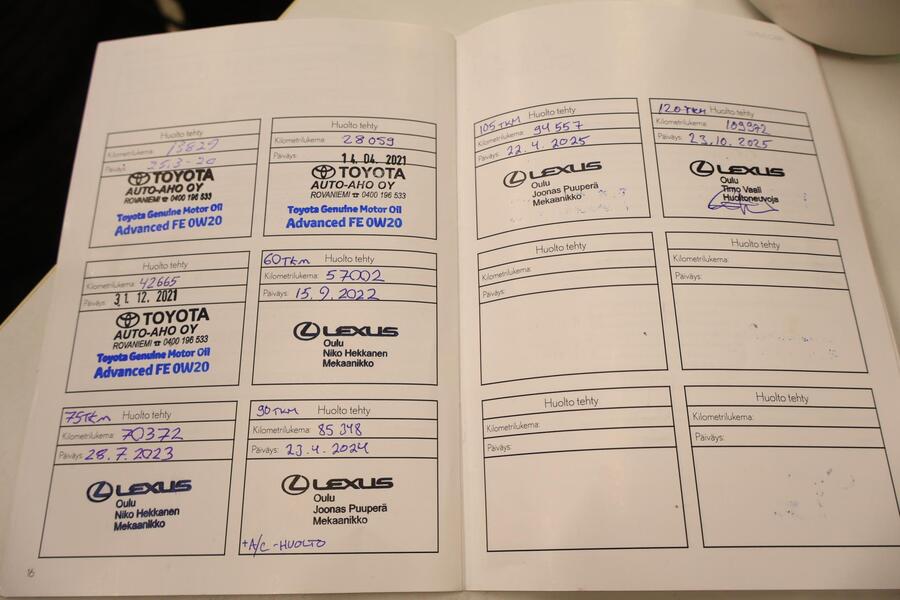 Huolto tehty
Kilometrilukema: 13829
Päiväys: 25.3-20
TOYOTA
AUTO-AHO OY
ROVANIEMI ☎ 0400 196 533
Toyota Genuine Motor Oil
Advanced FE 0W20
Huolto tehty
Kilometrilukema: 28059
Päiväys: 14. 04. 2021
TOYOTA
AUTO-AHO OY
ROVANIEMI ☎ 0400 196 533
Toyota Genuine Motor Oil
Advanced FE 0W20
Huolto tehty
Kilometrilukema: 42665
Päiväys: 31. 12. 2021
TOYOTA
AUTO-AHO OY
ROVANIEMI ☎ 0400 196 533
Toyota Genuine Motor Oil
Advanced FE 0W20
60TKM Huolto tehty
Kilometrilukema: 57002
Päiväys: 15.9.2022
LEXUS
Oulu
Niko Hekkanen
Mekaanikko
75TKM Huolto tehty
Kilometrilukema: 70372
Päiväys: 28.7.2023
LEXUS
Oulu
Niko Hekkanen
Mekaanikko
90 TKM Huolto tehty
Kilometrilukema: 85348
Päiväys: 23.4.2024
LEXUS
Oulu
Joonas Puuperä
Mekaanikko
+A/C-HUOLTO
16
105 TKM Huolto tehty
Kilometrilukema: 94557
Päiväys: 22.4.2025
LEXUS
Oulu
Joonas Puuperä
Mekaanikko
120TKM Huolto tehty
Kilometrilukema: 109972
Päiväys: 23.10.2025
LEXUS
Oulu
Timo Vaali
Huoltoneuvoja
Huolto tehty
Kilometrilukema:
Päiväys:
Huolto tehty
Kilometrilukema:
Päiväys:
Huolto tehty
Kilometrilukema:
Päiväys:
Huolto tehty
Kilometrilukema:
Päiväys: